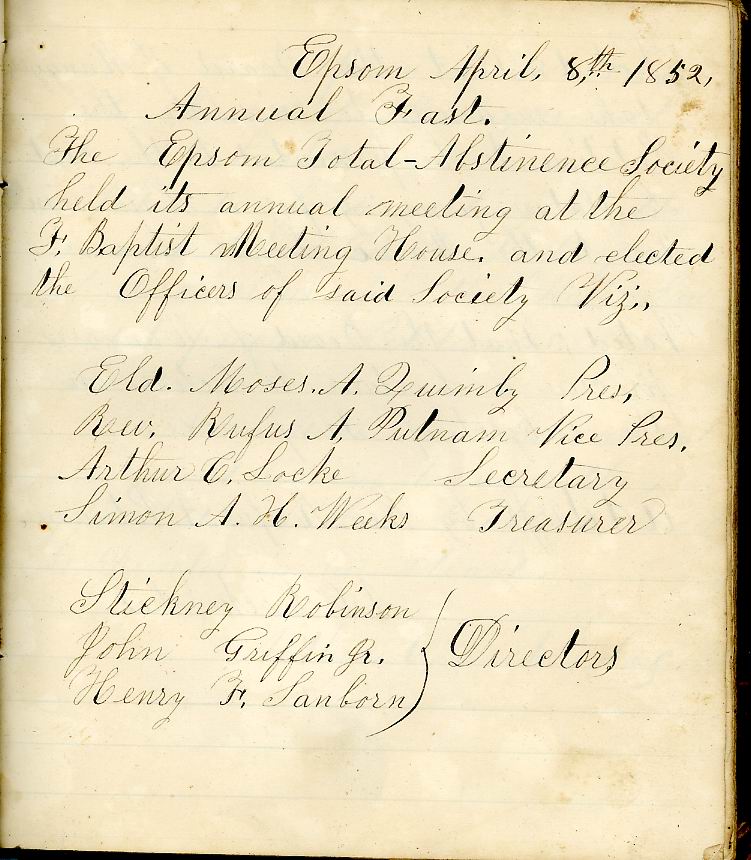 Epsom April, 8,th 1852,
Annual Fast.
The Epsom Total-Abstinence Society
held its annual meeting at the
F. Baptist Meeting House. and elected
the Officers of said Society Viz.,
Eld. Moses. A. Quimby Pres,
Rev. Rufus A. Putnam Vice Pres.
Arthur C. Locke Secretary
Simon A. H. Weeks Treasurer
Stickney Robinson
John Griffin Jr. } Directors
Henry F. Sanborn